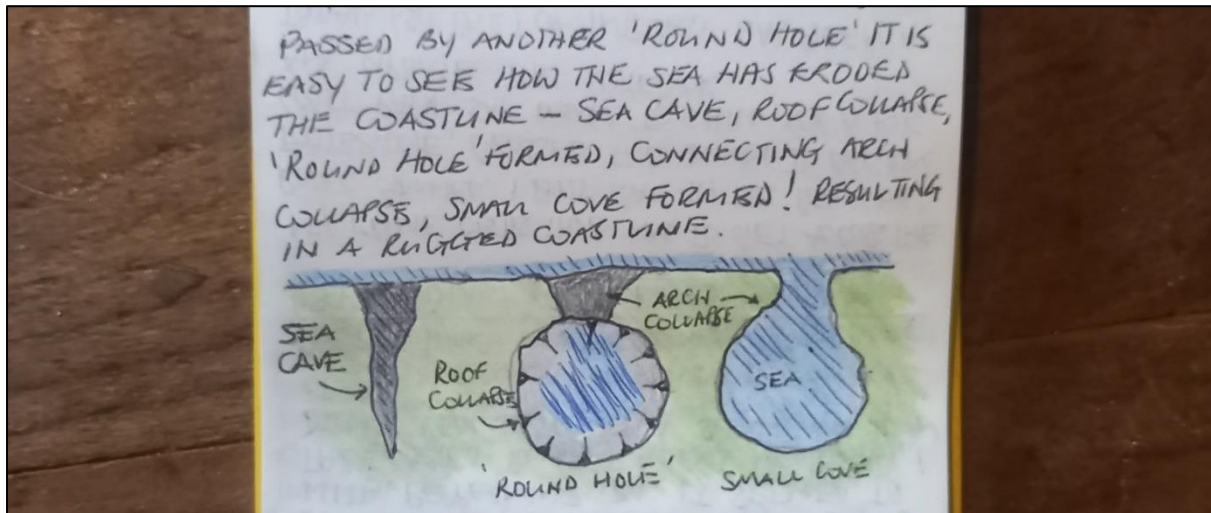 PASSED BY ANOTHER 'ROUND HOLE' IT IS
EASY TO SEE HOW THE SEA HAS ERODED
THE COASTLINE – SEA CAVE, ROOF COLLAPSE,
'ROUND HOLE' FORMED, CONNECTING ARCH
COLLAPSE, SMALL COVE FORMED! RESULTING
IN A RUGGED COASTLINE.
SEA
CAVE
ROOF
COLLAPSE
'ROUND HOLE'
ARCH
COLLAPSE
SEA
SMALL COVE